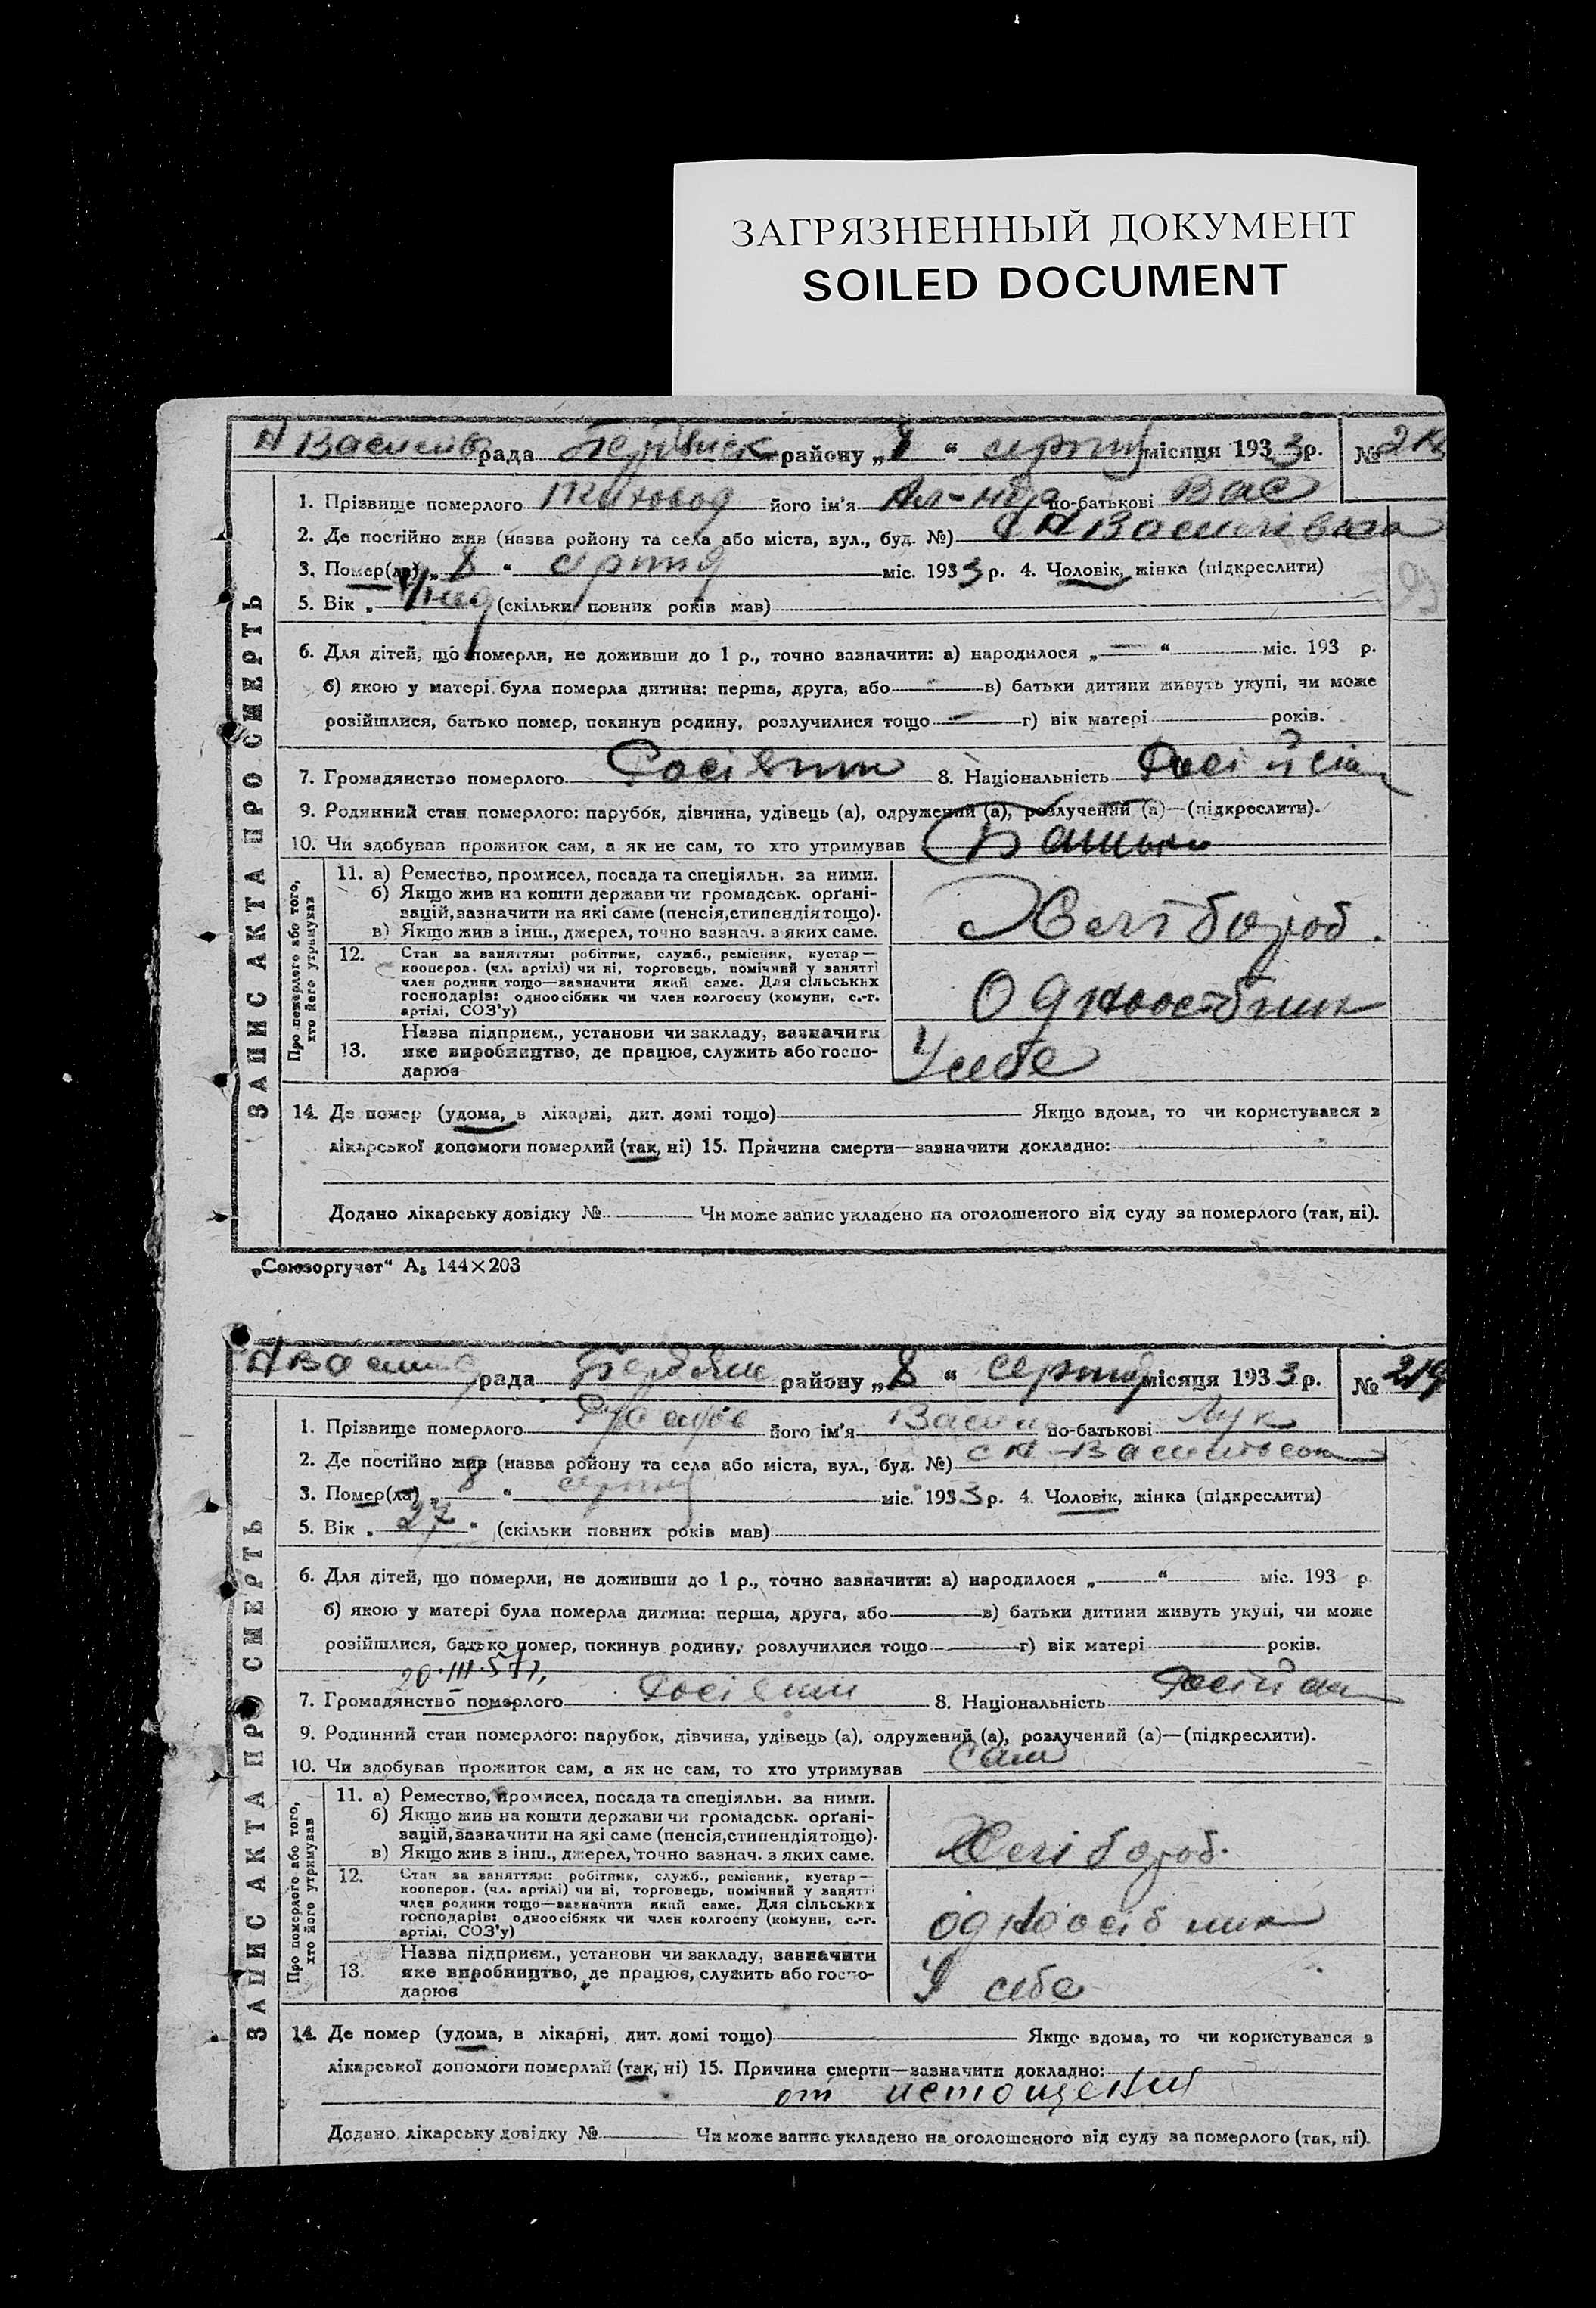 ЗАГРЯЗНЕННЫЙ ДОКУМЕНТ
SOILED DOCUMENT
рада району „8“ серпня місяця 1933 р. №
ЗАПИС АКТА ПРО СМЕРТЬ
1. Прізвище померлого його ім'я по-батькові Вас
2. Де постійно жив (назва району та села або міста, вул., буд. №) с Н Василівка
3. Помер(ла) „8“ серпня міс. 1933 р. 4. Чоловік, жінка (підкреслити)
5. Вік „ (скільки повних років мав)
6. Для дітей, що померли, не доживши до 1 р., точно зазначити: а) народилося „—“ міс. 193 р.
б) якою у матері була померла дитина: перша, друга, або — в) батьки дитини живуть укупі, чи може
розійшлися, батько помер, покинув родину, розлучилися тощо — г) вік матері років.
7. Громадянство померлого 8. Національність
9. Родинний стан померлого: парубок, дівчина, удівець (а), одружений (а), розлучений (а)—(підкреслити).
10. Чи здобував прожиток сам, а як не сам, то хто утримував Батьки
Про померлого або того,
хто його утримував
11. а) Ремество, промисел, посада та спеціяльн. за ними.
б) Якщо жив на кошти держави чи громадськ. орґані-
зацій, зазначити на які саме (пенсія, стипендія тощо).
в) Якщо жив в інш., джерел, точно зазнач. з яких саме.
Хлібороб.
12. Стан за заняттям: робітник, служб., ремісник, кустар—
кооперов. (чл. артілі) чи ні, торговець, помічний у занятті
член родини тощо—зазначити який саме. Для сільських
господарів: одноосібник чи член колгоспу (комуни, с.-г.
артілі, СОЗ'у)
Одноосібник
13. Назва підприєм., установи чи закладу, зазначити
яке виробництво, де працює, служить або госпо-
дарює
У себе
14. Де помер (удома, в лікарні, дит. домі тощо) Якщо вдома, то чи користувався з
лікарської допомоги померлий (так, ні) 15. Причина смерти—зазначити докладно:
Додано лікарську довідку № Чи може запис укладено на оголошеного від суду за померлого (так, ні).
„Союзоргучет“ А₅ 144×203
рада району „8“ серпня місяця 1933 р. № 219
ЗАПИС АКТА ПРО СМЕРТЬ
1. Прізвище померлого його ім'я Васил по-батькові Лук
2. Де постійно жив (назва району та села або міста, вул., буд. №)
3. Помер(ла) „8“ серпня міс. 1933 р. 4. Чоловік, жінка (підкреслити)
5. Вік „27“ (скільки повних років мав)
6. Для дітей, що померли, не доживши до 1 р., точно зазначити: а) народилося „—“ міс. 193 р.
б) якою у матері була померла дитина: перша, друга, або — в) батьки дитини живуть укупі, чи може
розійшлися, батько помер, покинув родину, розлучилися тощо — г) вік матері років.
7. Громадянство померлого 8. Національність
9. Родинний стан померлого: парубок, дівчина, удівець (а), одружений (а), розлучений (а)—(підкреслити).
10. Чи здобував прожиток сам, а як не сам, то хто утримував Сам
Про померлого або того,
хто його утримував
11. а) Ремество, промисел, посада та спеціяльн. за ними.
б) Якщо жив на кошти держави чи громадськ. орґані-
зацій, зазначити на які саме (пенсія, стипендія тощо).
в) Якщо жив в інш., джерел, точно зазнач. з яких саме.
Хлібороб.
12. Стан за заняттям: робітник, служб., ремісник, кустар—
кооперов. (чл. артілі) чи ні, торговець, помічний у занятті
член родини тощо—зазначити який саме. Для сільських
господарів: одноосібник чи член колгоспу (комуни, с.-г.
артілі, СОЗ'у)
одноосібник
13. Назва підприєм., установи чи закладу, зазначити
яке виробництво, де працює, служить або госпо-
дарює
У себе
14. Де помер (удома, в лікарні, дит. домі тощо) Якщо вдома, то чи користувався з
лікарської допомоги померлий (так, ні) 15. Причина смерти—зазначити докладно:
от истощения
Додано лікарську довідку № Чи може запис укладено на оголошеного від суду за померлого (так, ні).